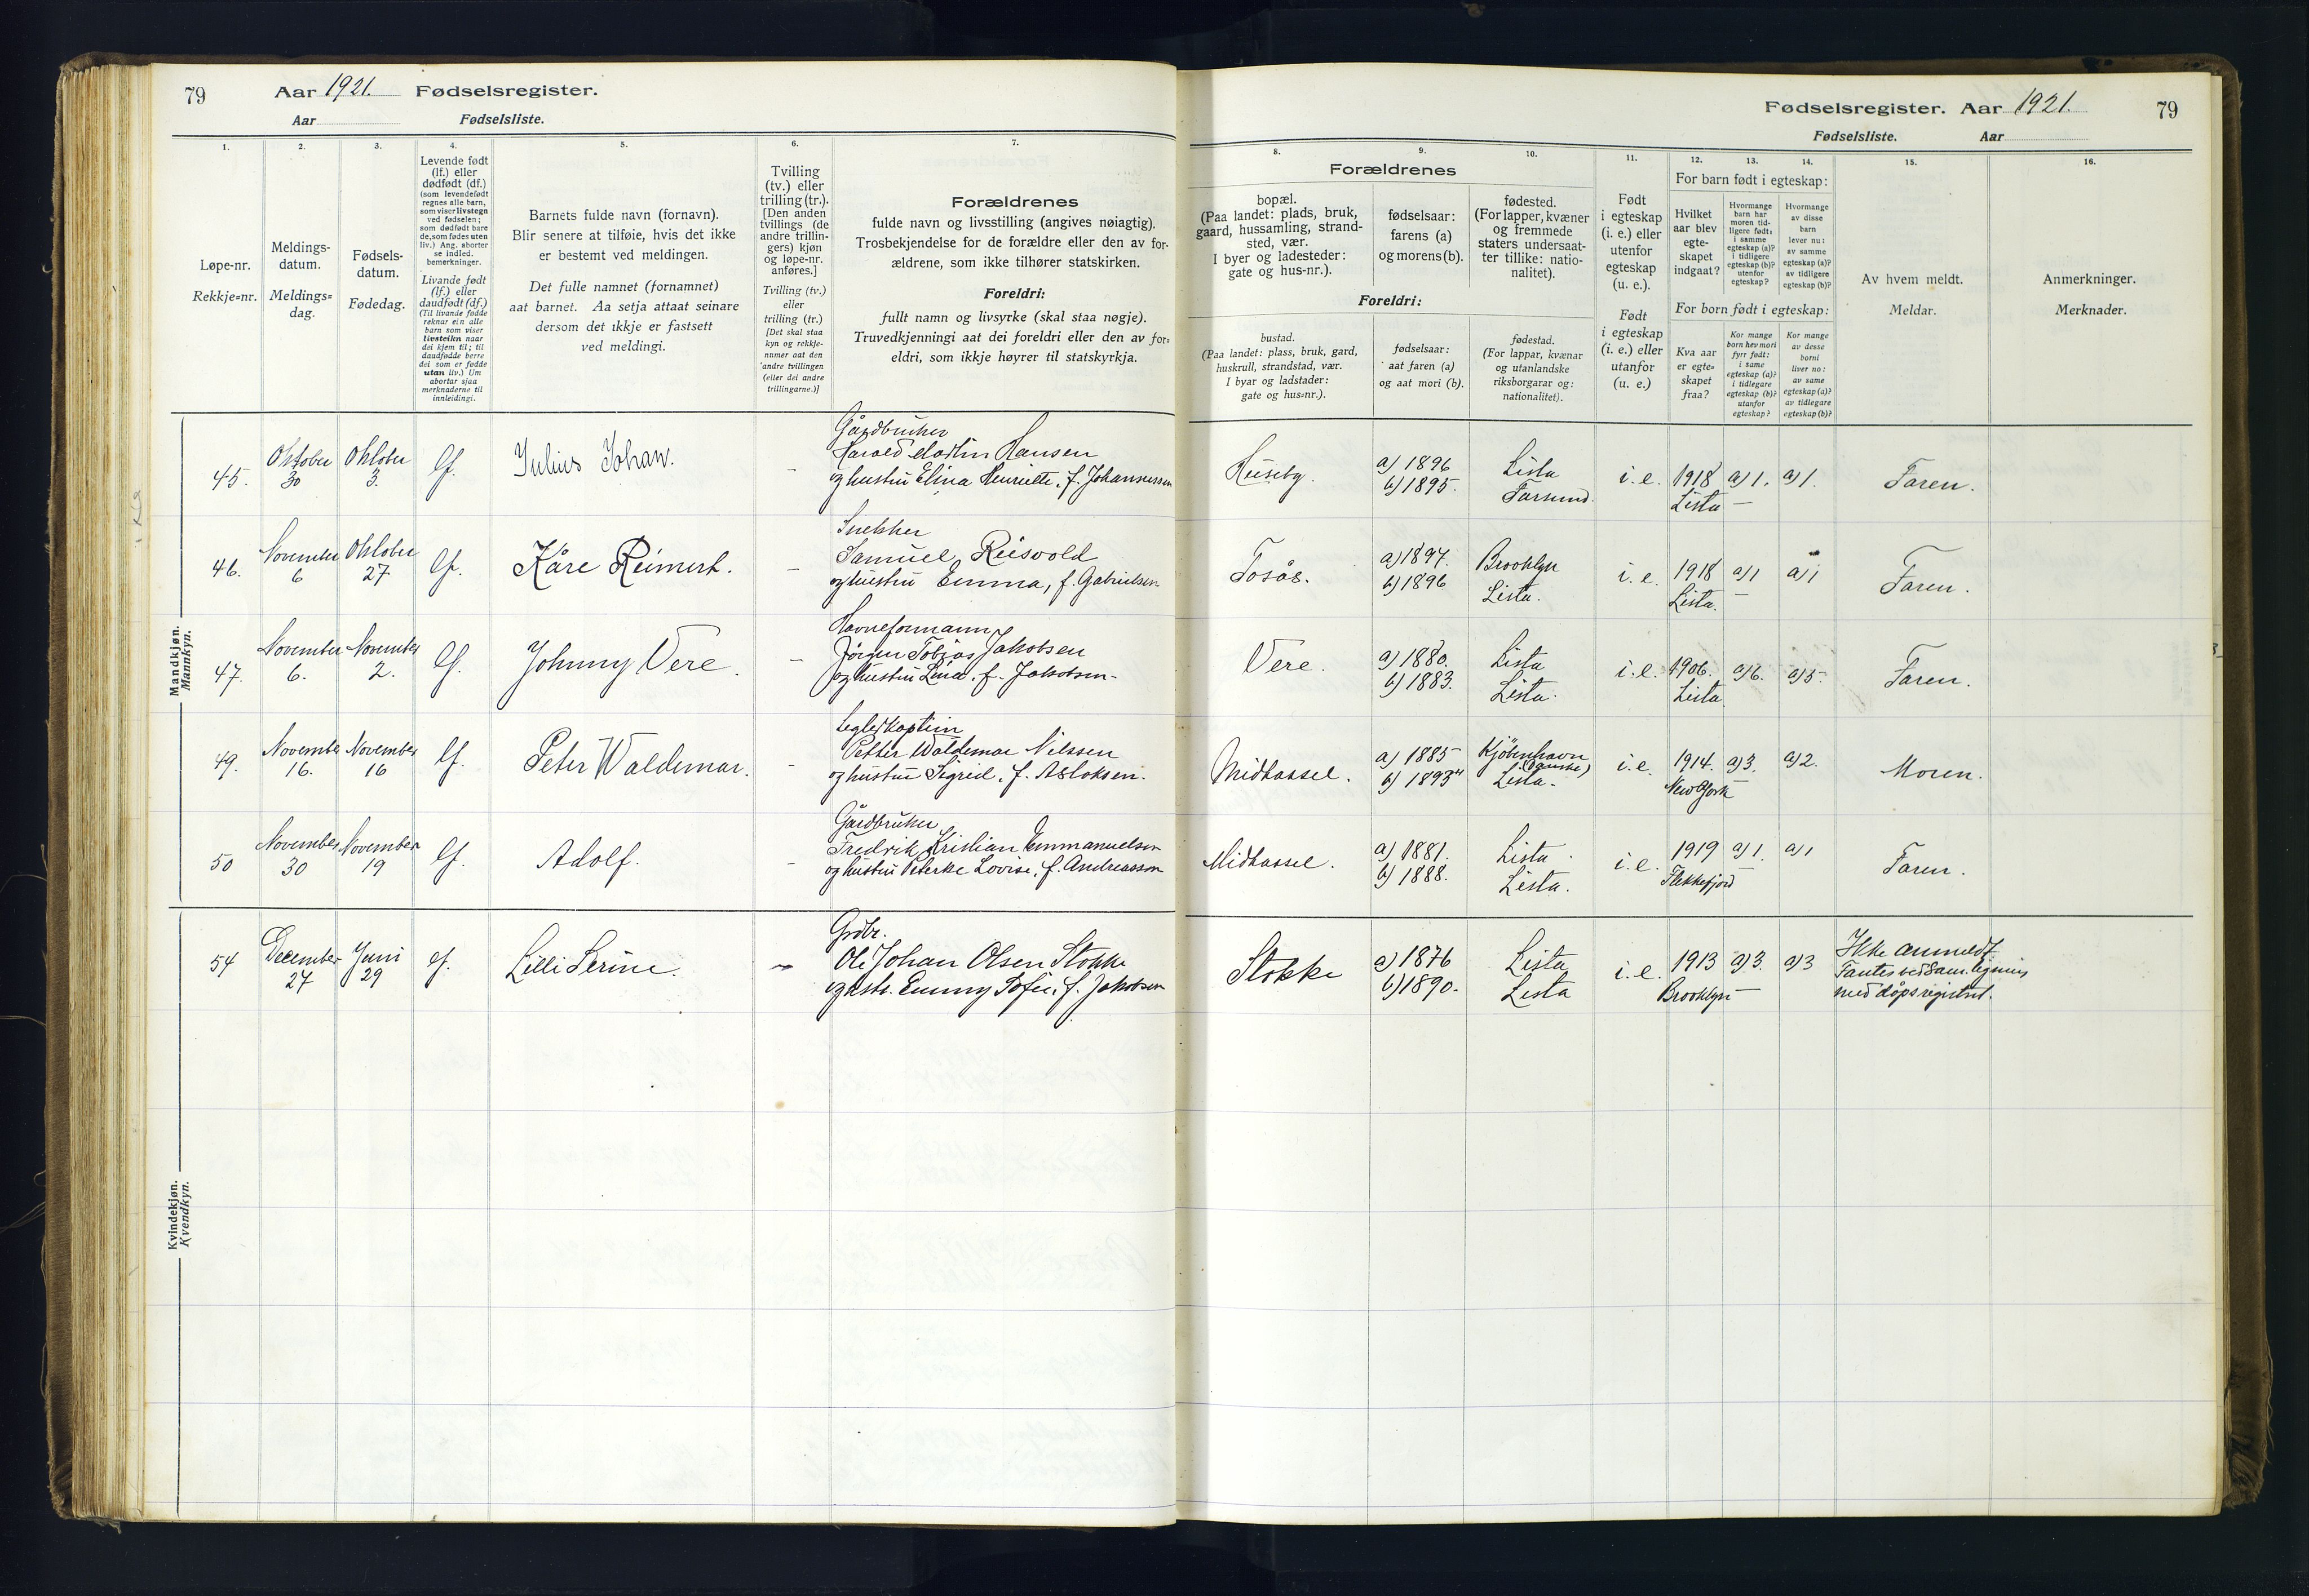 79
Aar 1921. Fødselsregister.
Aar Fødselsliste.
Fødselsregister. Aar 1921.
79
Fødselsliste. Aar
1.
Løpe-nr.
Rekkje=nr.
2.
Meldings-
datum.
Meldings=
dag.
3.
Fødsels-
datum.
Fødedag.
4.
Levende født
(lf.) eller
dødfødt (df.)
(som levendefødt
regnes alle barn,
som viser livstegn
ved fødselen;
som dødfødt bare
de, som fødes uten
liv.) Ang. aborter
se indled.
bemerkninger.
Livande født
(lf.) eller
daudfødt (df.)
(Til livande fødde
reknar ein alle
barn som viser
livsteikn naar
dei kjem til; til
daudfødde berre
dei som er fødde
utan liv.) Um
abortar sjaa
merknaderne til
innleidingi.
5.
Barnets fulde navn (fornavn).
Blir senere at tilføie, hvis det ikke
er bestemt ved meldingen.
Det fulle namnet (fornamnet)
aat barnet. Aa setja attaat seinare
dersom det ikkje er fastsett
ved meldingi.
6.
Tvilling
(tv.) eller
trilling (tr.).
[Den anden
tvillings (de
andre trillin-
gers) kjøn
og løpe-nr.
anføres.]
Tvilling (tv.)
eller
trilling (tr.)
[Det skal staa
kyn og rekkje-
numer aat den
andre tvillingen
(eller dei andre
trillingarne.)]
7.
Forældrenes
fulde navn og livsstilling (angives nøiagtig).
Trosbekjendelse for de forældre eller den av for-
ældrene, som ikke tilhører statskirken.
Foreldri:
fullt namn og livsyrke (skal staa nøgje).
Truvedkjenningi aat dei foreldri eller den av for=
eldri, som ikkje høyrer til statskyrkja.
8.
Forældrenes
bopæl.
(Paa landet: plads, bruk,
gaard, hussamling, strand-
sted, vær.
I byer og ladesteder:
gate og hus-nr.).
Foreldri:
bustad.
(Paa landet: plass, bruk, gard,
huskrull, strandstad, vær.
I byar og ladstader:
gate og hus=nr.).
9.
fødselsaar:
farens (a)
og morens (b).
fødselsaar:
aat faren (a)
og aat mori (b).
10.
fødested.
(For lapper, kvæner
og fremmede
staters undersaat-
ter tillike: natio-
nalitet).
fødestad.
(For lappar, kvænar
og utanlandske
riksborgarar og:
nationalitet).
11.
Født
i egteskap
(i. e.) eller
utenfor
egteskap
(u. e.).
Født
i egteskap
(i. e.) eller
utanfor
(u. e.)
12. 13. 14.
For barn født i egteskap:
Hvilket
aar blev
egte-
skapet
indgaat?
Hvormange
barn har
moren tid-
ligere født:
i samme
egteskap (a)?
i tidligere
egteskap (b)?
utenfor
egteskap?
Hvormange
av disse
barn
lever nu:
av samme
egteskap (a)?
av tidligere
egteskap (b)?
For born født i egteskap:
Kva aar
er egte=
skapet
fraa?
Kor mange
born hev mori
fyrr født:
i same
egteskap (a)?
i tidlegare
egteskap (b)?
utanfor
egteskap?
Kor mange
av desse
borni
liver no:
av same
egteskap (a)?
av tidlegare
egteskap (b)?
15.
Av hvem meldt.
Meldar.
16.
Anmerkninger.
Merknader.
Mandkjøn.
Mannkyn.
45. Oktober 30 Oktober 3. lf. Julius Johan. -
Gårdbruker
Harald Martin Hansen
og hustru Elina Henriette, f. Johannessen
Huseby. a) 1896 b) 1895. Lista Farsund. i. e. 1918 Lista a) 1. a) 1. Faren.
46. November 6 Oktober 27 lf. Kåre Reimert. -
Snekker
Samuel Reisvold
og hustru Emma, f. Gabrielsen
Tosås. a) 1897. b) 1896 Brooklyn Lista. i. e. 1918 Lista. a) 1 a) 1 Faren.
47. November 6. November 2. lf. Johnny Vere. -
Havneformann
Jörgen Tobias Jakobsen
og hustru Lina, f. Jakobsen.
Vere. a) 1880. b) 1883. Lista Lista. i. e. 1906. Lista a) 6. a) 5. Faren.
49. November 16. November 16 lf. Peter Waldemar. -
Seglskaptein
Petter Waldemar Nilssen
og hustru Sigrid, f. Asloksen.
Midhassel. a) 1885 b) 1893 Kjöbenhavn (danske) Lista. i. e. 1914. New York a) 3. a) 2. Moren.
50 November 30 November 19 lf. Adolf. -
Gårdbruker
Fredrik Kristian Emmanuelsen
og hustru Peterke Lovise, f. Andreassen
Midhassel. a) 1881. b) 1888. Lista Lista. i. e. 1919 Flekkefjord a) 1. a) 1 Faren.
Kvindekjøn.
Kvendkyn.
54 December 27 Juni 29 lf. Lilli Serine. -
Grdbr.
Ole Johan Olsen Stokke
og hstr. Emmy Sofie, f. Jakobsen
Stokke a) 1876 b) 1890. Lista Lista i. e. 1913 Brooklyn a) 3. a) 3
Ikke anmeldt.
Fantes ved Sam.ligning
med dåpsregistret.